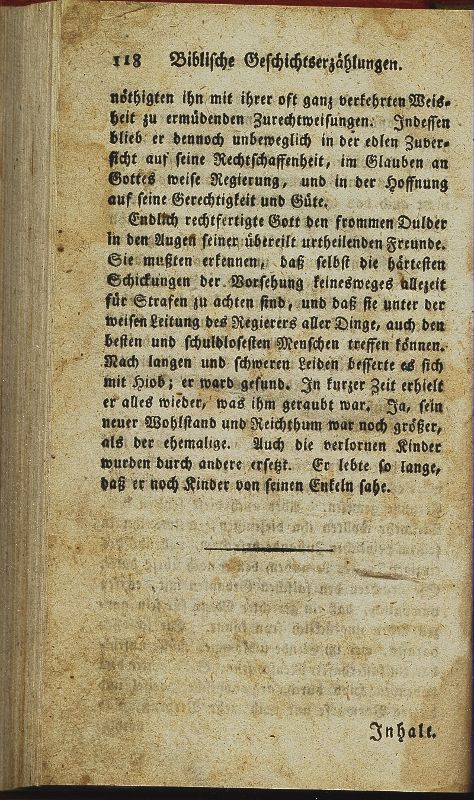 118 Biblische Geschichtserzählungen.
nöthigten ihn mit ihrer oft ganz verkehrten Weis-
heit zu ermüdenden Zurechtweisungen. Indessen
blieb er dennoch unbeweglich in der edlen Zuver-
sicht auf seine Rechtschaffenheit, im Glauben an
Gottes weise Regierung, und in der Hoffnung
auf seine Gerechtigkeit und Güte.
Endlich rechtfertigte Gott den frommen Dulder
in den Augen seiner übereilt urtheilenden Freunde.
Sie mußten erkennen, daß selbst die härtesten
Schickungen der Vorsehung keinesweges allezeit
für Strafen zu achten sind, und daß sie unter der
weisen Leitung des Regierers aller Dinge, auch den
besten und schuldlosesten Menschen treffen können.
Nach langen und schweren Leiden besserte es sich
mit Hiob; er ward gesund. In kurzer Zeit erhielt
er alles wieder, was ihm geraubt war. Ja, sein
neuer Wohlstand und Reichthum war noch größer,
als der ehemalige. Auch die verlornen Kinder
wurden durch andere ersetzt. Er lebte so lange,
daß er noch Kinder von seinen Enkeln sahe.
Inhalt.